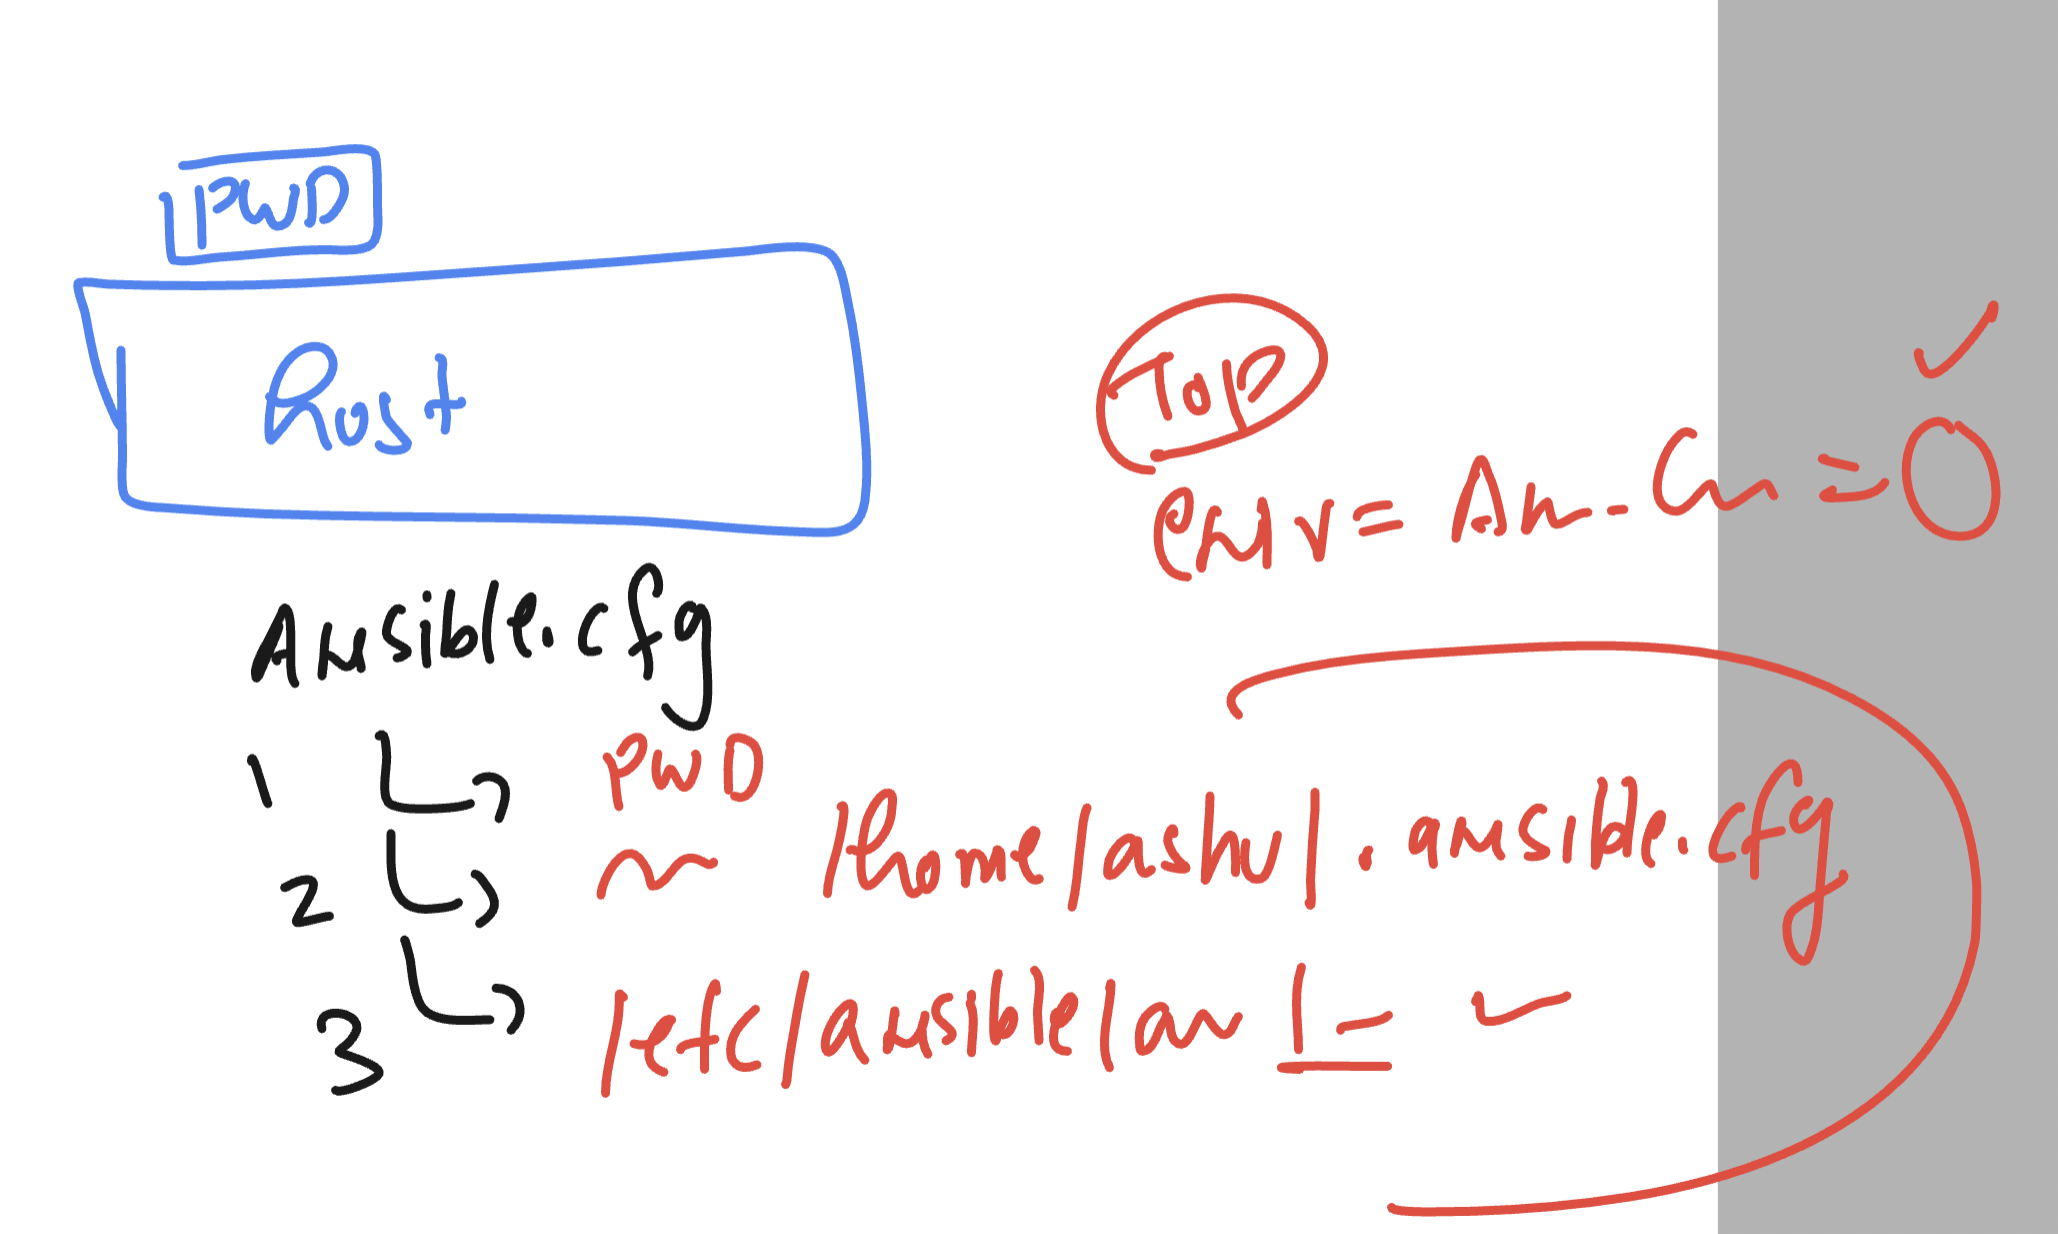 PWD
host
TOP
env = An - Cn = 0
Ansible.cfg
1 PWD
2 ~ /home/ashu/.ansible.cfg
3 /etc/ansible/an